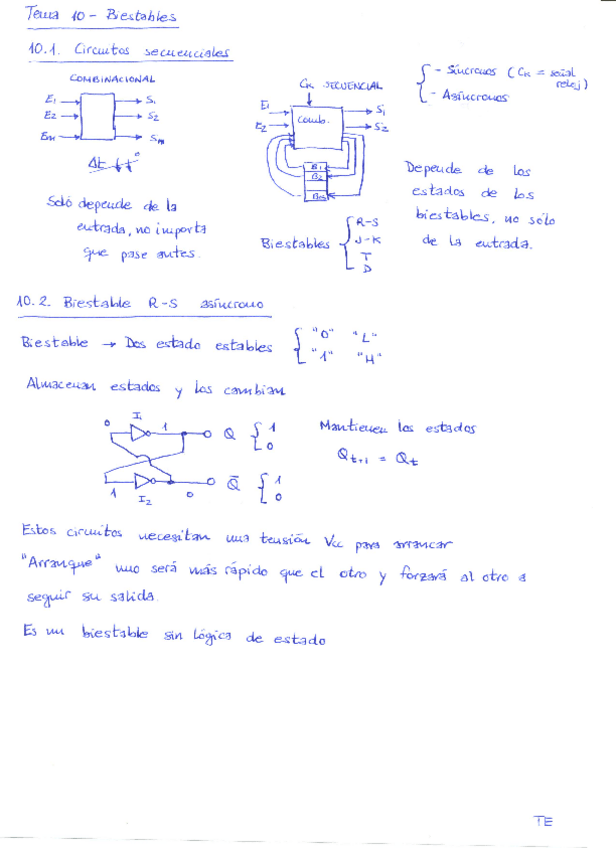 Tema 10 - Biestables
10.1. Circuitos secuenciales
COMBINACIONAL
E1 S1
E2 S2
Em Sm
Δt
Sólo depende de la
entrada, no importa
que pase antes.
CK SECUENCIAL
E1 S1
E2 S2
Comb.
B1
B2
Biestables
R-S
J-K
T
D
- Síncronos (CK = señal
reloj)
- Asíncronos
Depende de los
estados de los
biestables, no sólo
de la entrada.
10.2. Biestable R-S asíncrono
Biestable → Dos estado estables
"0" "L"
"1" "H"
Almacenan estados y los cambian
0 I1 1 Q 1
0
1 I2 0 Q̄ 1
0
Mantienen los estados
Qt+1 = Qt
Estos circuitos necesitan una tensión Vcc para arrancar
"Arranque" uno será más rápido que el otro y forzará al otro a
seguir su salida.
Es un biestable sin lógica de estado
TE